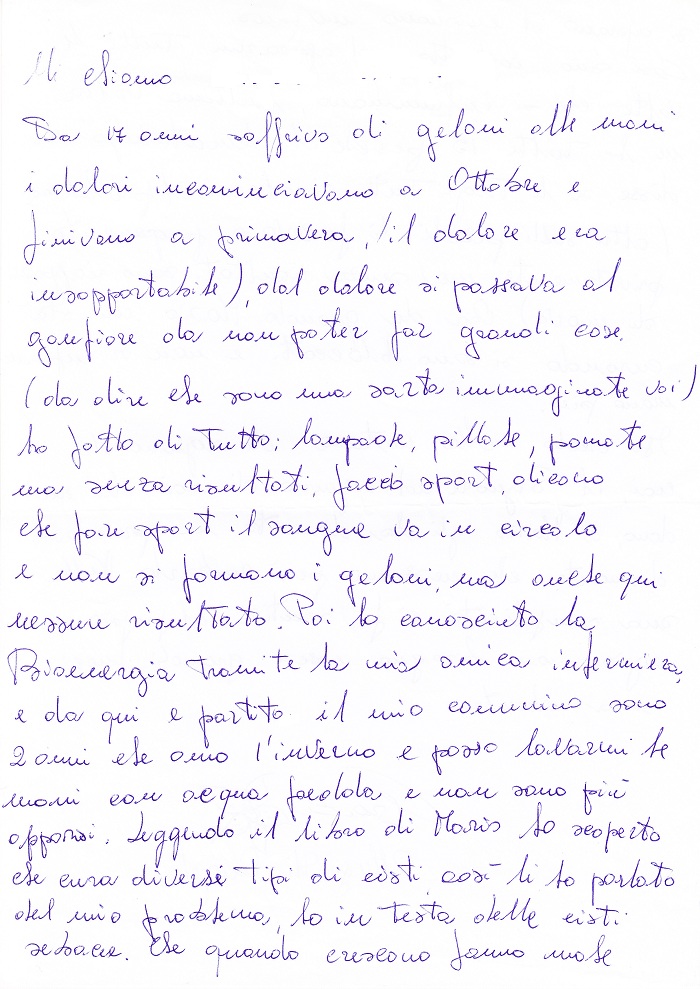 Mi chiamo
Da 17 anni soffrivo di geloni alle mani
i dolori incomincia­vano a Ottobre e
finivano a primavera, (il dolore era
insopportabile), dal dolore si passava al
gonfiore da non poter far grandi cose.
(da dire che sono una sarta immaginate voi)
ho fatto di tutto; lampade, pillole, pomate
ma senza risultati, faccio sport, dicono
che fare sport il sangue va in circolo
e non si formano i geloni, ma anche qui
nessun risultato. Poi ho conosciuto la
Bioenergia tramite la mia amica infermiera,
e da qui e partito il mio cammino sono
2 anni che amo l'inverno e posso lavarmi le
mani con acqua fredda e non sono più
Leggendo il libro di Maris ho scoperto
che cura diversi tipi di cisti, così li ho parlato
del mio problema, ho in testa delle cisti
sebacee. Che quando crescono fanno male